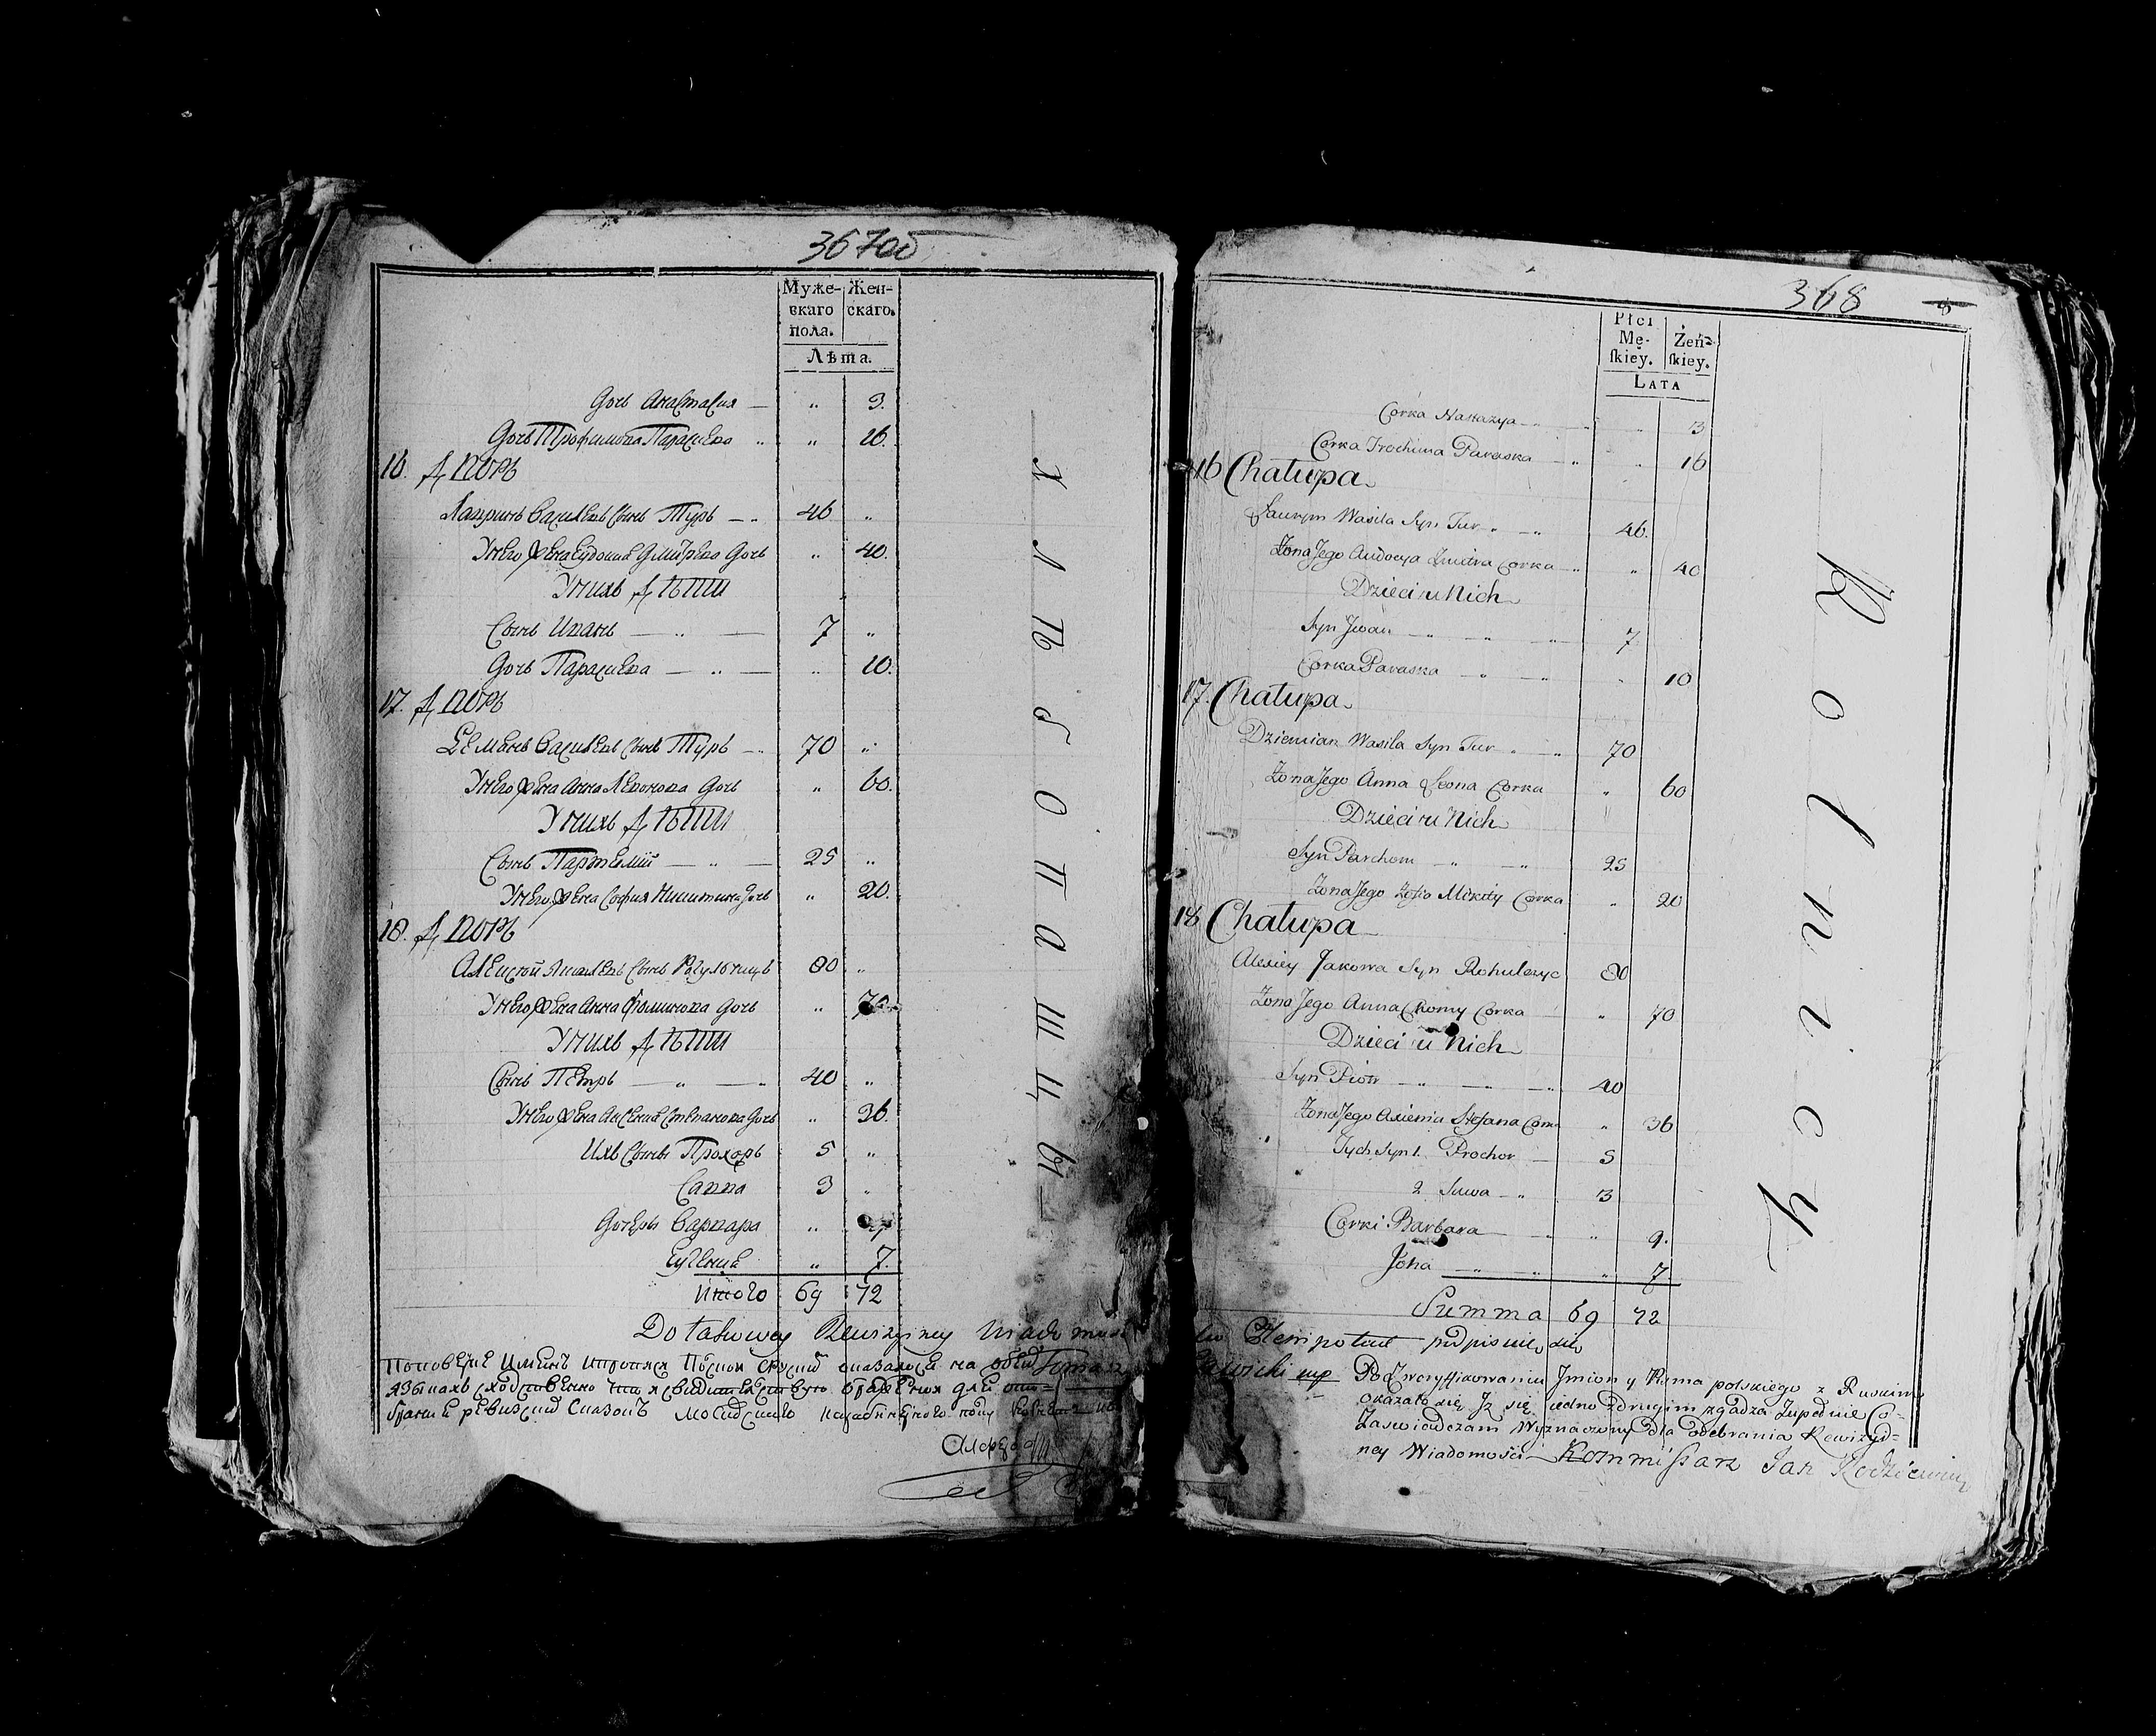 367об
Муже-
скаго
пола.
Жен-
скаго.
Лѣта.
Дочь Анастасия — „ 3.
Дочь Трофимова Парасцева „ „ 16.
16. Дворъ
Лавринъ Василевъ Сынъ Туръ — „ 46 „
Унего жена Евдокиѣ Дмитрева Дочь „ 40.
Унихъ Дѣти
Сынъ Иванъ — „ — 7 „
Дочь Парасцева — „ — „ 10.
17. Дворъ
Демянъ Василевъ Сынъ Туръ — „ 70 „
Унего жена Анна Леонова Дочь „ 60.
Унихъ Дѣти
Сынъ Партемий — „ — 25 „
Унего жена София Никитина Дочь „ 20.
18. Дворъ
Алексѣй Яковлевъ Сынъ Рагульчицъ 80 „
Унего жена Анна Фомичова Дочь „ 70
Унихъ Дѣти
Сынъ Петръ — „ — „ 40 „
Унего жена Аксениѣ Степанова Дочь „ 36.
Ихъ Сыны Прохоръ 5 „
Савва 3 „
Дочери Варвара „
Евгениѣ „ 7.
Итого 69 72
Хлѣбопашцы
Do takowey Rewizyiney Wiado
Поповерке имянъ
языкахъ сходственно
Ревизских Сказокъ
368
8
Płci
Mę-
skiey.
Żeń-
skiey.
LATA
Corka Nastazya — „ „ 3
Corka Trochima Paraska — „ „ 16
16 Chałupa
Lauryn Wasila Syn Tur „ — „ 46.
Żona Jego Audocya Zmitra Corka — „ „ 40
Dzieci u Nich
Syn Jwan — „ „ „ 7.
Corka Paraska — „ — „ „ 10
17. Chałupa
Dziemian Wasila Syn Tur „ — „ 70
Żona Jego Anna Leona Corka „ 60
Dzieci u Nich
Syn Parchom — „ — „ 25
Żona Jego Zofia Mikity Corka „ 20
18 Chałupa
Alexiey Jakowa Syn Rohulczyc 80
Żona Jego Anna Chomy Corka — „ 70
Dzieci u Nich
Syn Piotr — „ — „ — „ 40
Żona Jego Axienia Stefana Cor „ 36
Tych Syn 1. Prochor — 5
2 Sawa — „ 3
Corki Barbara — „ „ 9.
Joha — „ „ „ 7.
Summa 69 72
Rolnicy
podpisuię się
Po Zweryffikowaniu Jmion y Nama polskiego z Ruskim
okazało się Jż się iedno zdrugim zgadza Zupełnie Co-
Zaswiadczam Wyznaczony dla odebrania Rewizyi-
ney Wiadomości — Kommissarz Jan